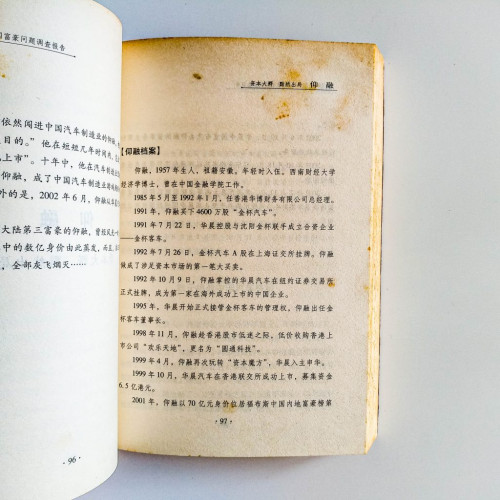 国富豪问题调查报告
依然闯进中国汽车制造业的仰融,
目的。”他在短短几年时间内,
上市”。十年中,他在汽车制造
融,成了中国汽车制造业的
外的是,2002年6月,仰融从
大陆第三富豪的仰融,曾经风光一
中的数亿身价由此蒸发,而且,
全部灰飞烟灭……
·96·
资本大鳄 黯然出局 仰 融
【仰融档案】
仰融,1957年生人,祖籍安徽,年轻时入伍。西南财经大学
经济学博士,曾在中国金融学院工作。
1985年5月至1992年1月,任香港华博财务有限公司总经理。
1991年,仰融买下4600万股“金杯汽车”。
1991年7月22日,华晨控股与沈阳金杯联手成立合资企业—
—金杯客车。
1992年7月26日,金杯汽车A股在上海证交所挂牌。仰融
做成了涉足资本市场的第一笔大买卖。
1992年10月9日,仰融掌控的华晨汽车在纽约证券交易所
正式挂牌,成为第一家在海外成功上市的中国企业。
1995年,华晨开始正式接管金杯客车的管理权,仰融出任金
杯客车董事长。
1998年11月,仰融趁香港股市低迷之际,低价收购香港上
市公司“欢乐天地”,更名为“圆通科技”。
1999年4月,仰融再次玩转“资本魔方”,华晨入主申华。
1999年10月,华晨汽车在香港联交所成功上市,募集资金
6.5亿港元。
2001年,仰融以70亿元身价位居福布斯中国内地富豪榜第
·97·